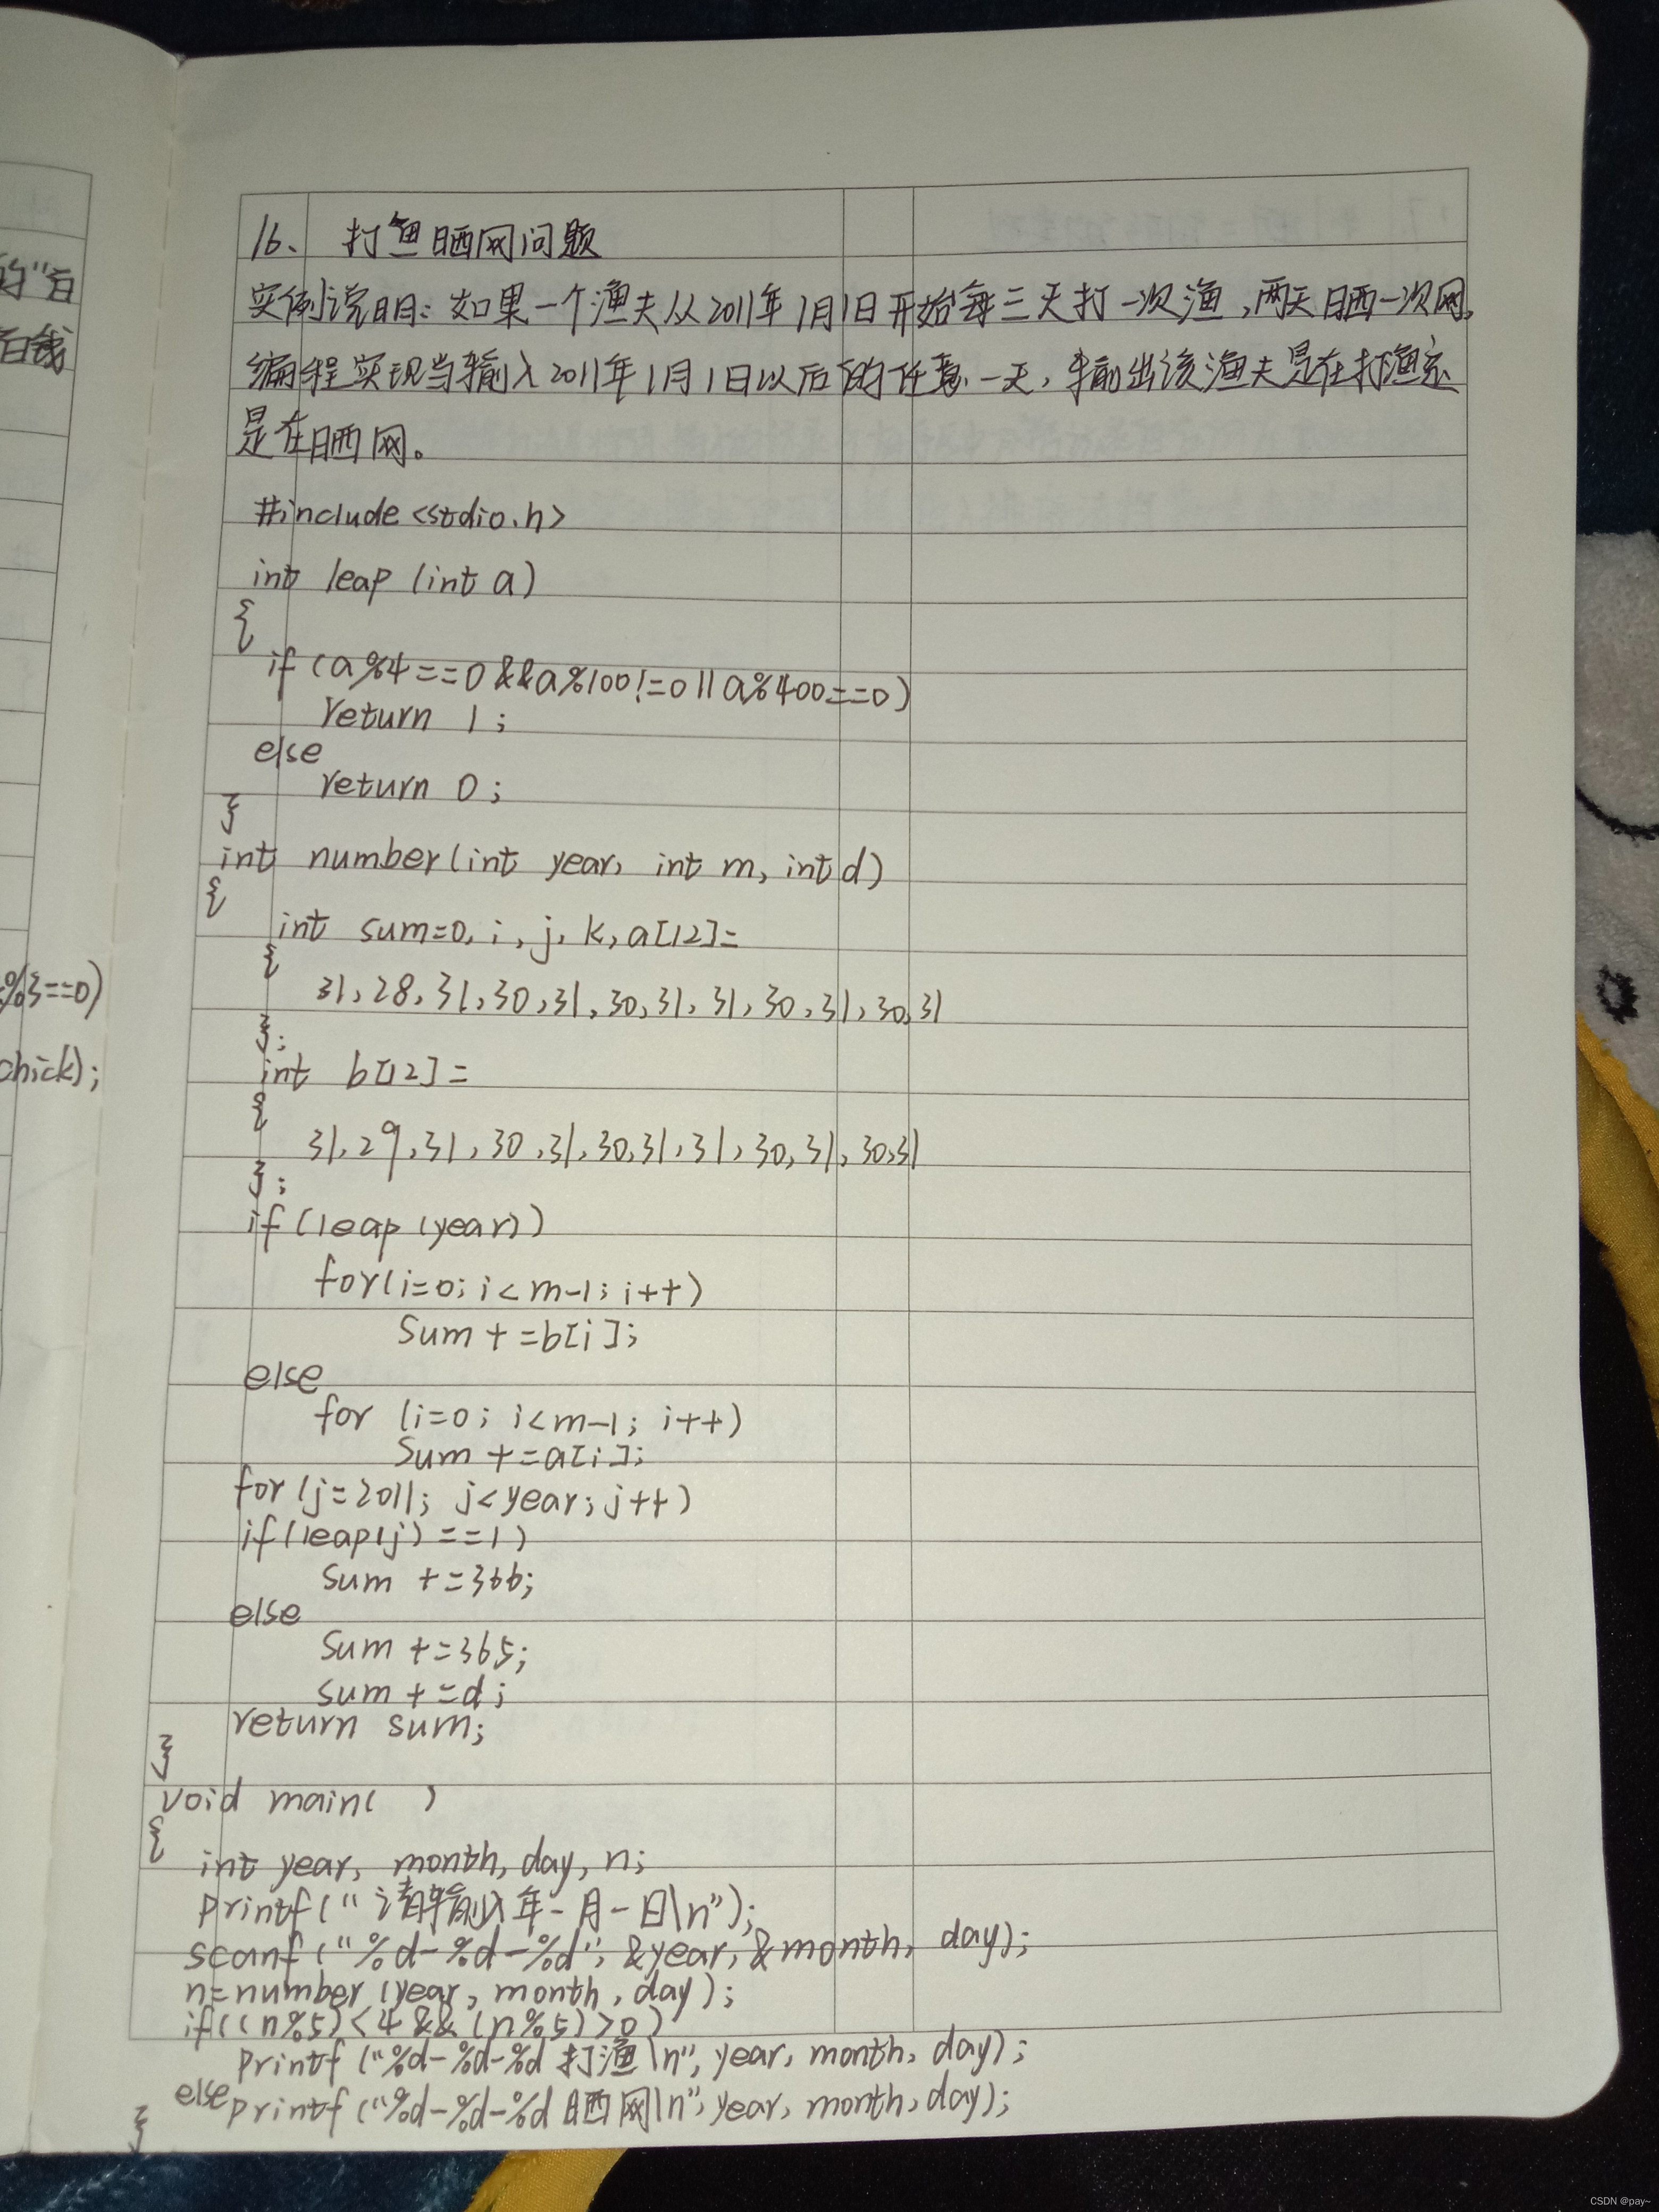 的"百
百钱
%3==0)
chick);
16、 打鱼晒网问题
实例说明：如果一个渔夫从2011年1月1日开始每三天打一次渔，两天晒一次网，
编程实现当输入2011年1月1日以后的任意一天，输出该渔夫是在打渔还
是在晒网。
#include<stdio.h>
int leap (int a)
{
if (a%4==0&&a%100!=0||a%400==0)
return 1;
else
return 0;
}
int number(int year, int m, int d)
{
int sum=0, i, j, k, a[12]=
{
31,28,31,30,31,30,31,31,30,31,30,31
};
int b[12]=
{
31,29,31,30,31,30,31,31,30,31,30,31
};
if(leap(year))
for(i=0; i<m-1; i++)
sum +=b[i];
else
for (i=0; i<m-1; i++)
sum +=a[i];
for(j=2011; j<year; j++)
if(leap(j)==1)
sum +=366;
else
sum +=365;
sum +=d;
return sum;
}
void main( )
{
int year, month, day, n;
printf("请输入年-月-日\n");
scanf("%d-%d-%d", &year, &month, day);
n=number(year, month, day);
if((n%5)<4&&(n%5)>0)
printf("%d-%d-%d 打渔\n", year, month, day);
else printf("%d-%d-%d 晒网\n", year, month, day);
}
CSDN @pay~